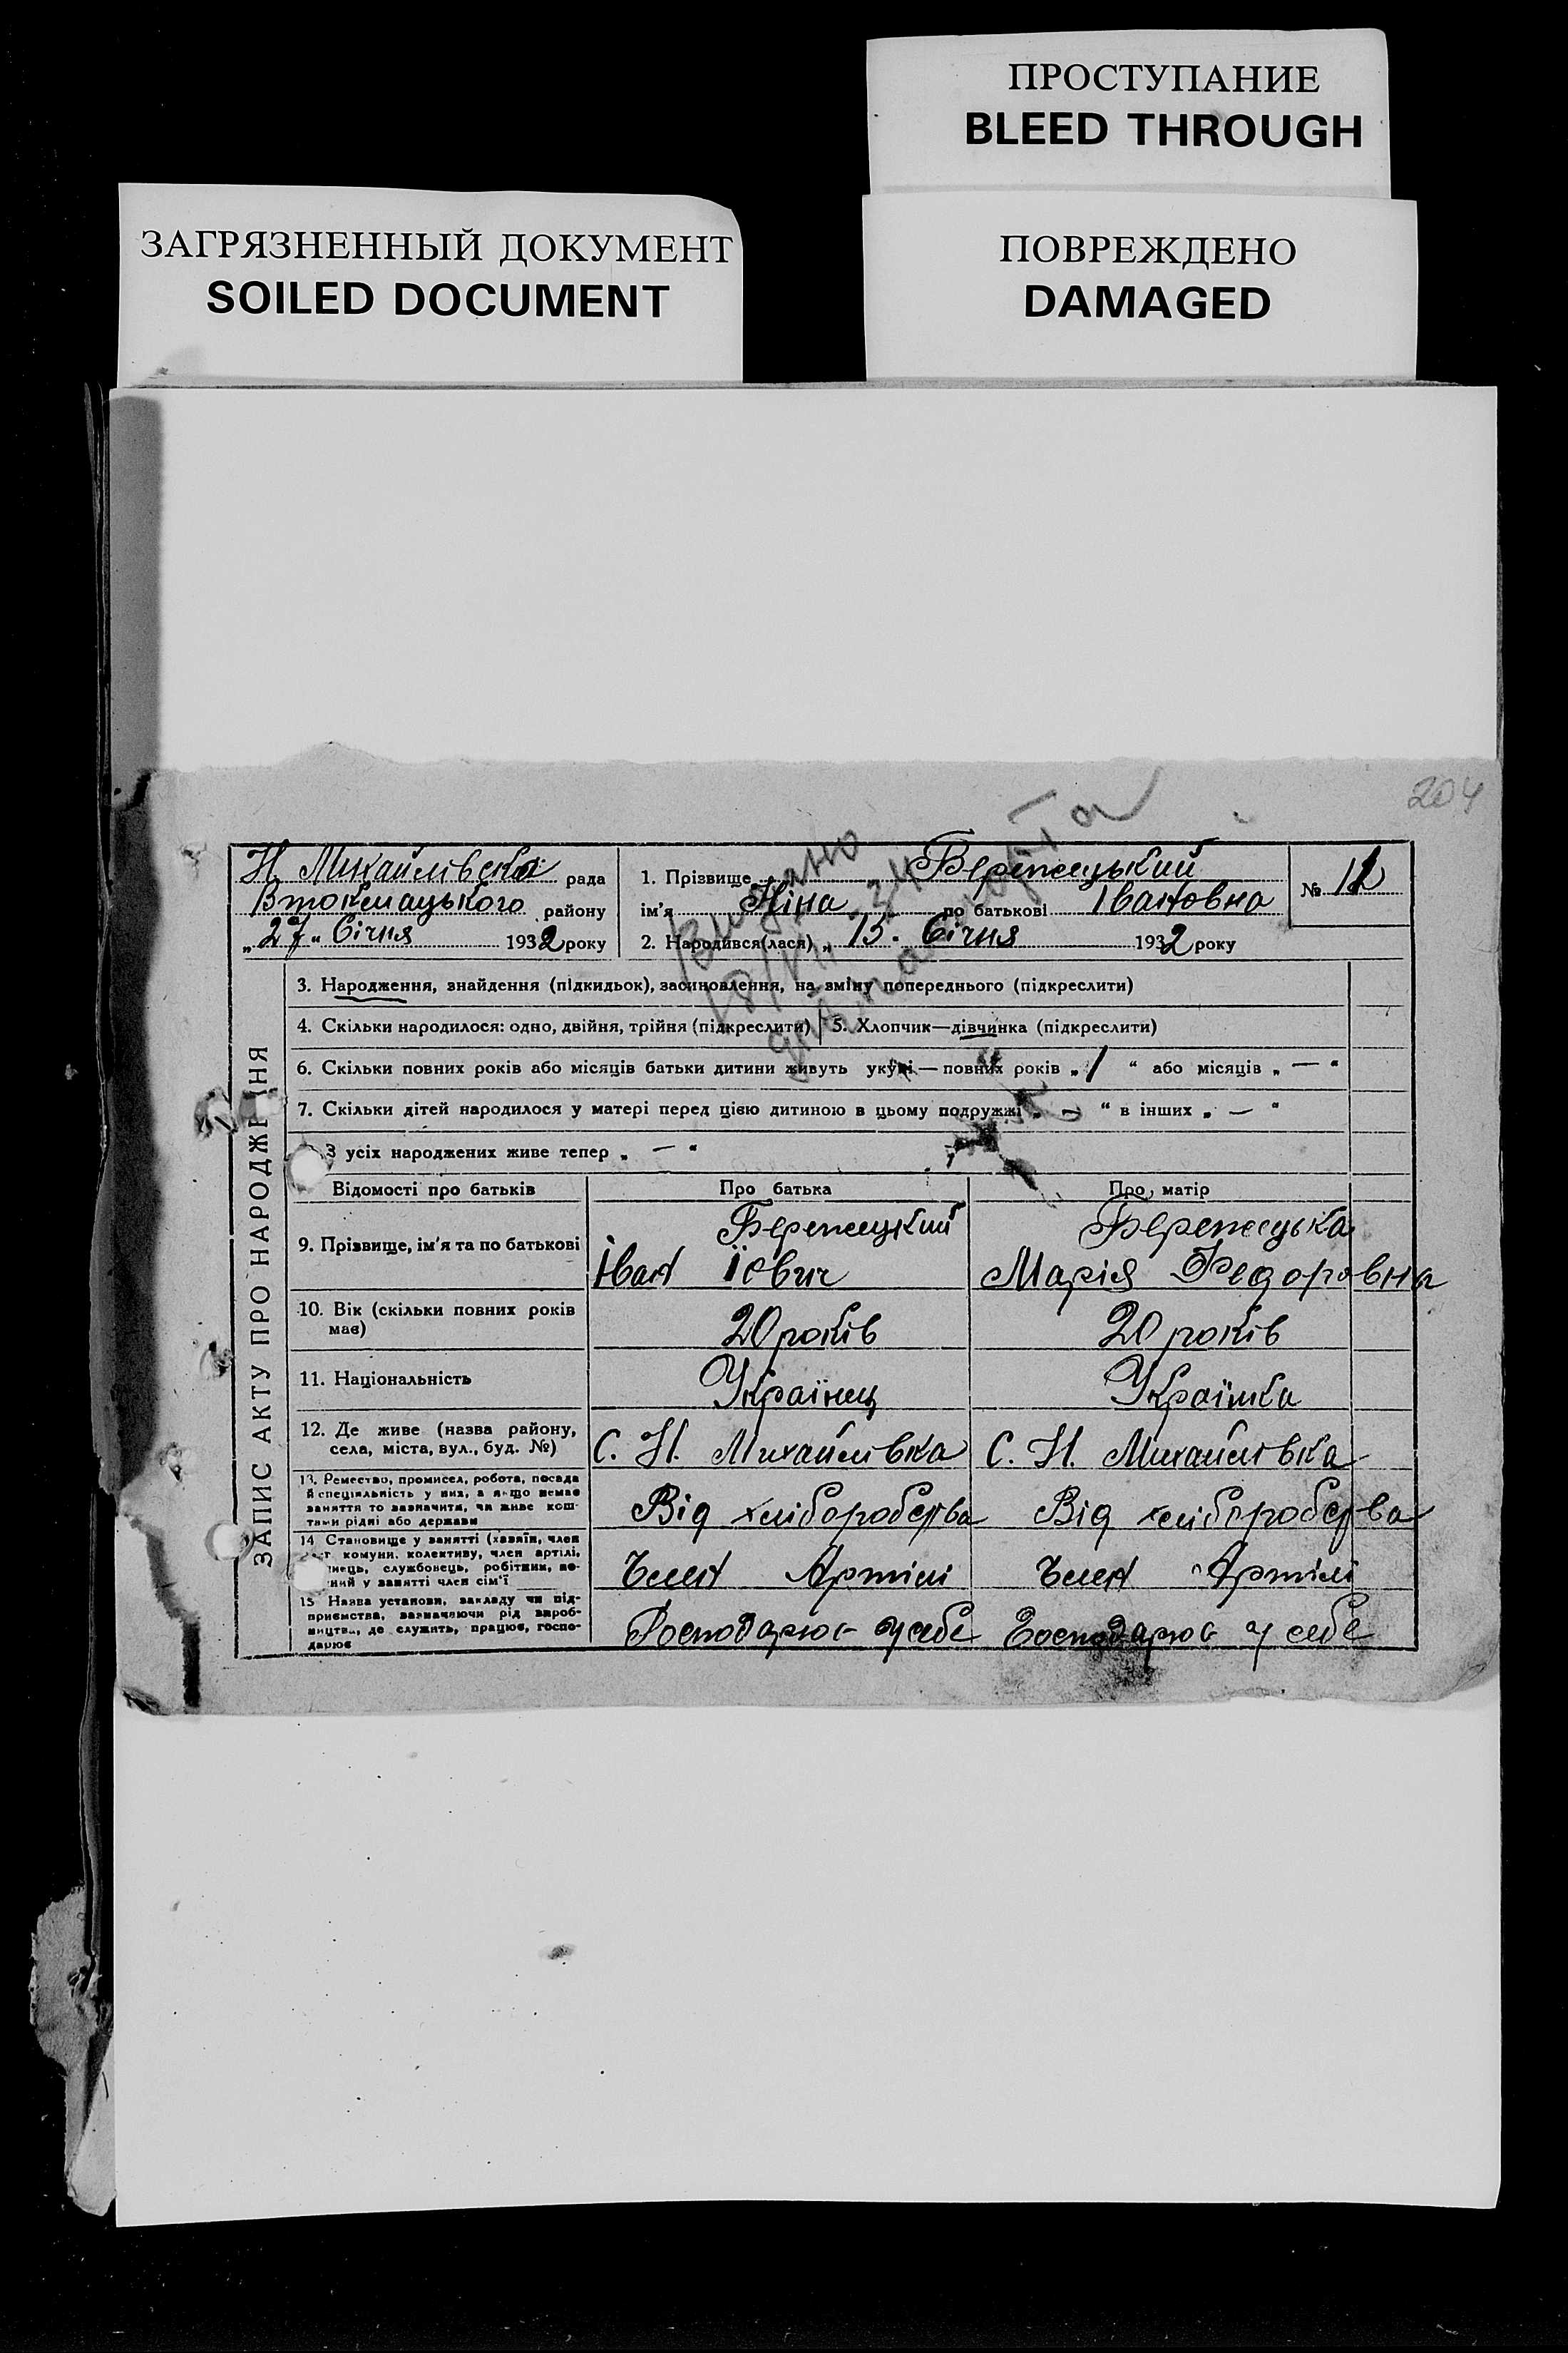 ПРОСТУПАНИЕ
BLEED THROUGH
ЗАГРЯЗНЕННЫЙ ДОКУМЕНТ
SOILED DOCUMENT
ПОВРЕЖДЕНО
DAMAGED
204
ЗАПИС АКТУ ПРО НАРОДЖЕННЯ
Н. Михайлівска рада
Втокмацького району
„27" Січня 1932 року
1. Прізвище Бережецький
ім'я Ніна по батькові Івановна
2. Народився(лася) „15. Січня 1932 року
№ 12
Видано
18/VII 34
3. Народження, знайдення (підкидьок), засиновлення, на зміну попереднього (підкреслити)
4. Скільки народилося: одно, двійня, трійня (підкреслити) 5. Хлопчик—дівчинка (підкреслити)
6. Скільки повних років або місяців батьки дитини живуть укупі — повних років „ 1 " або місяців „ — "
7. Скільки дітей народилося у матері перед цією дитиною в цьому подружжі „ — " в інших „ — "
З усіх народжених живе тепер „ — "
Відомості про батьків Про батька Про матір
9. Прізвище, ім'я та по батькові
Бережецкий
Іван Їович
Бережецька
Марія Федоровна
10. Вік (скільки повних років має)
20 років 20 років
11. Національність
Українец Українка
12. Де живе (назва району,
села, міста, вул., буд. №)
С. Н. Михайлівка С. Н. Михайлівка
13. Ремество, промисел, робота, посада
й спеціяльність у них, а якщо немає
заняття то зазначити, чи живе кош-
тами рідні або держави
Від хліборобства Від хліборобства
14 Становище у занятті (хазяїн, член
комуни, колективу, член артілі,
службовець, робітник,
у занятті член сім'ї
Член Артілі Член Артілі
15 Назва установи, закладу чи під-
приємства, зазначаючи рід вироб-
ництва, де служить, працює, госпо-
дарює
Господарює у себе Господарює у себе